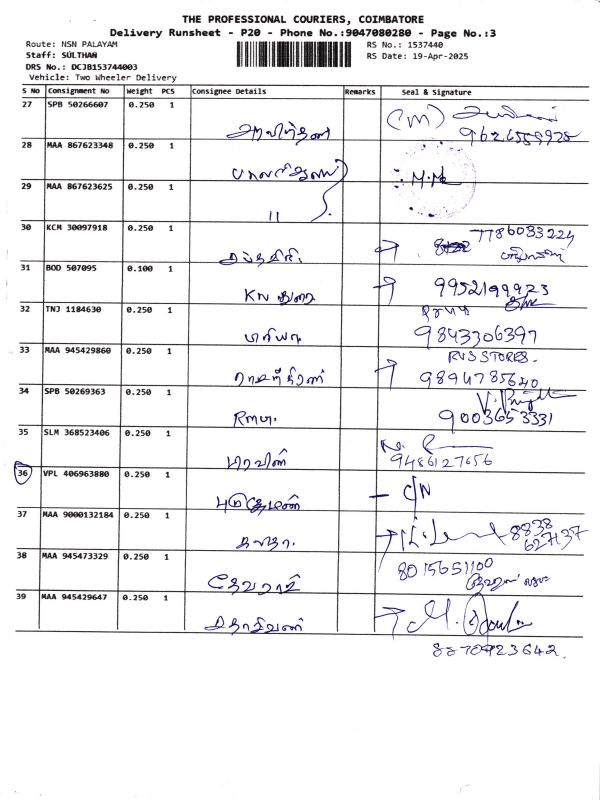 THE PROFESSIONAL COURIERS, COIMBATORE
Delivery Runsheet - P20 - Phone No.:9047080280 - Page No.:3
Route: NSN PALAYAM
RS No.: 1537440
Staff: SULTHAN
RS Date: 19-Apr-2025
DRS No.: DCJB153744003
Vehicle: Two Wheeler Delivery
S No Consignment No Weight PCS Consignee Details Remarks Seal & Signature
27 SPB 50266607 0.250 1
28 MAA 867623348 0.250 1
M.M
29 MAA 867623625 0.250 1
11
30 KCM 30097918 0.250 1
7786033224
31 BOD 507095 0.100 1
KN துரை 9952199923
32 TNJ 1184630 0.250 1
பிரியா 9843306397
33 MAA 945429860 0.250 1
RVS STORES.
9894785640
34 SPB 50269363 0.250 1
9003653331
35 SLM 368523406 0.250 1
பிரவின் 9486127656
36 VPL 406963880 0.250 1
C/N
37 MAA 9000132184 0.250 1
8838
627137
38 MAA 945473329 0.250 1
8015651100
தேவராஜ்
39 MAA 945429647 0.250 1
சதாசிவன்
8870923642.